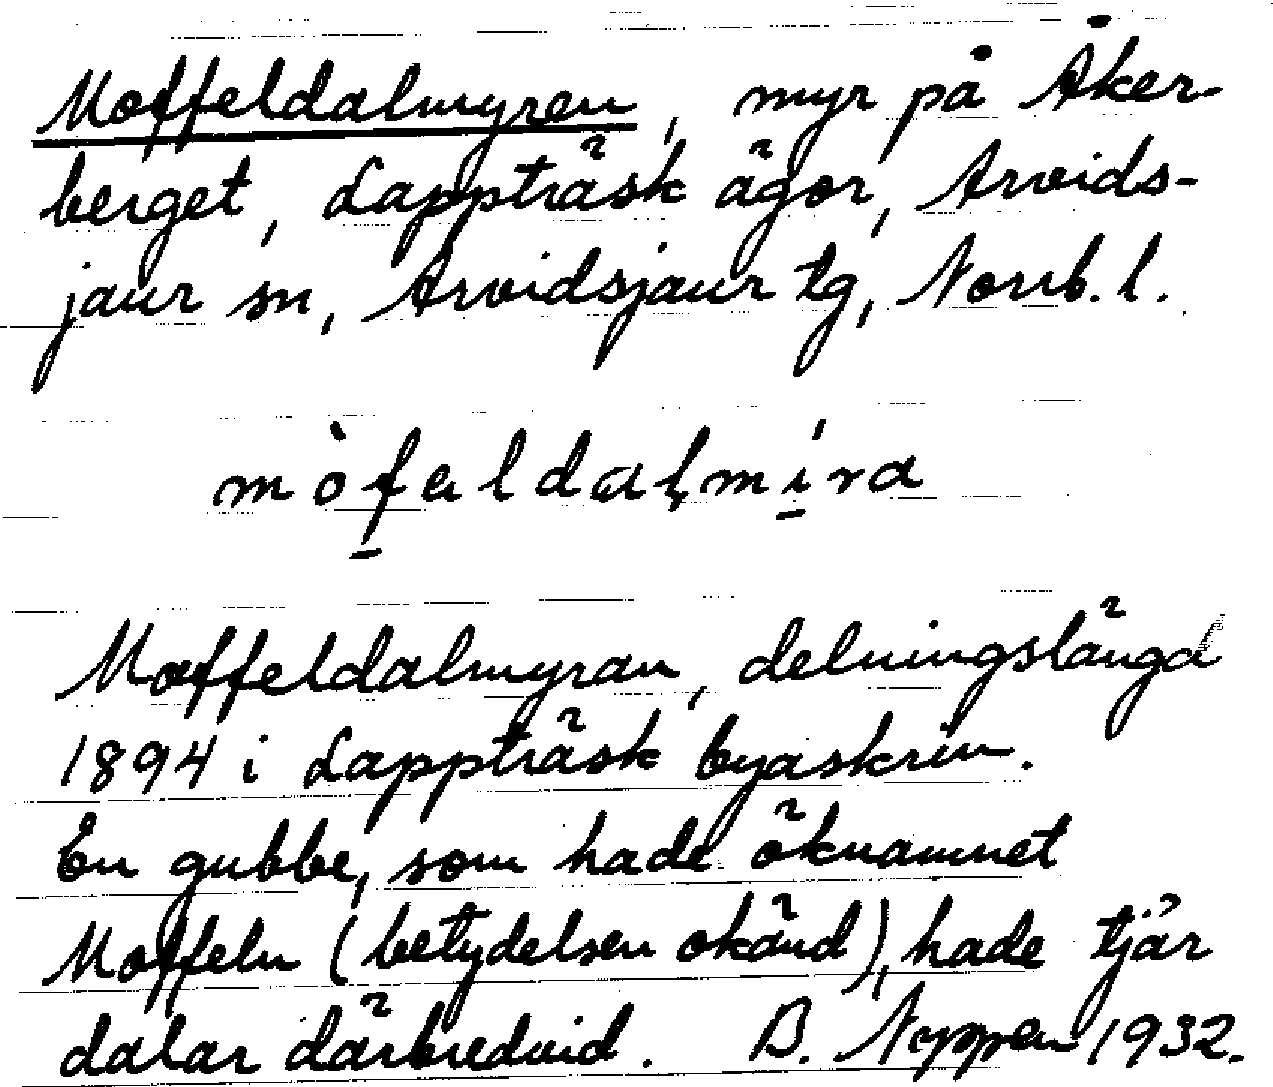 Moffeldalmyren, myr på Åker-
berget, Lappträsk ägor, Arvids-
jaur sn, Arvidsjaur tg, Norrb. l.
mòfəldalmíra
Moffeldalmyran, delningslängd
1894 i Lappträsk byaskrin.
En gubbe, som hade öknamnet
Moffeln (betydelsen okänd), hade tjär
dalar därbredvid. B. Nyppen 1932.